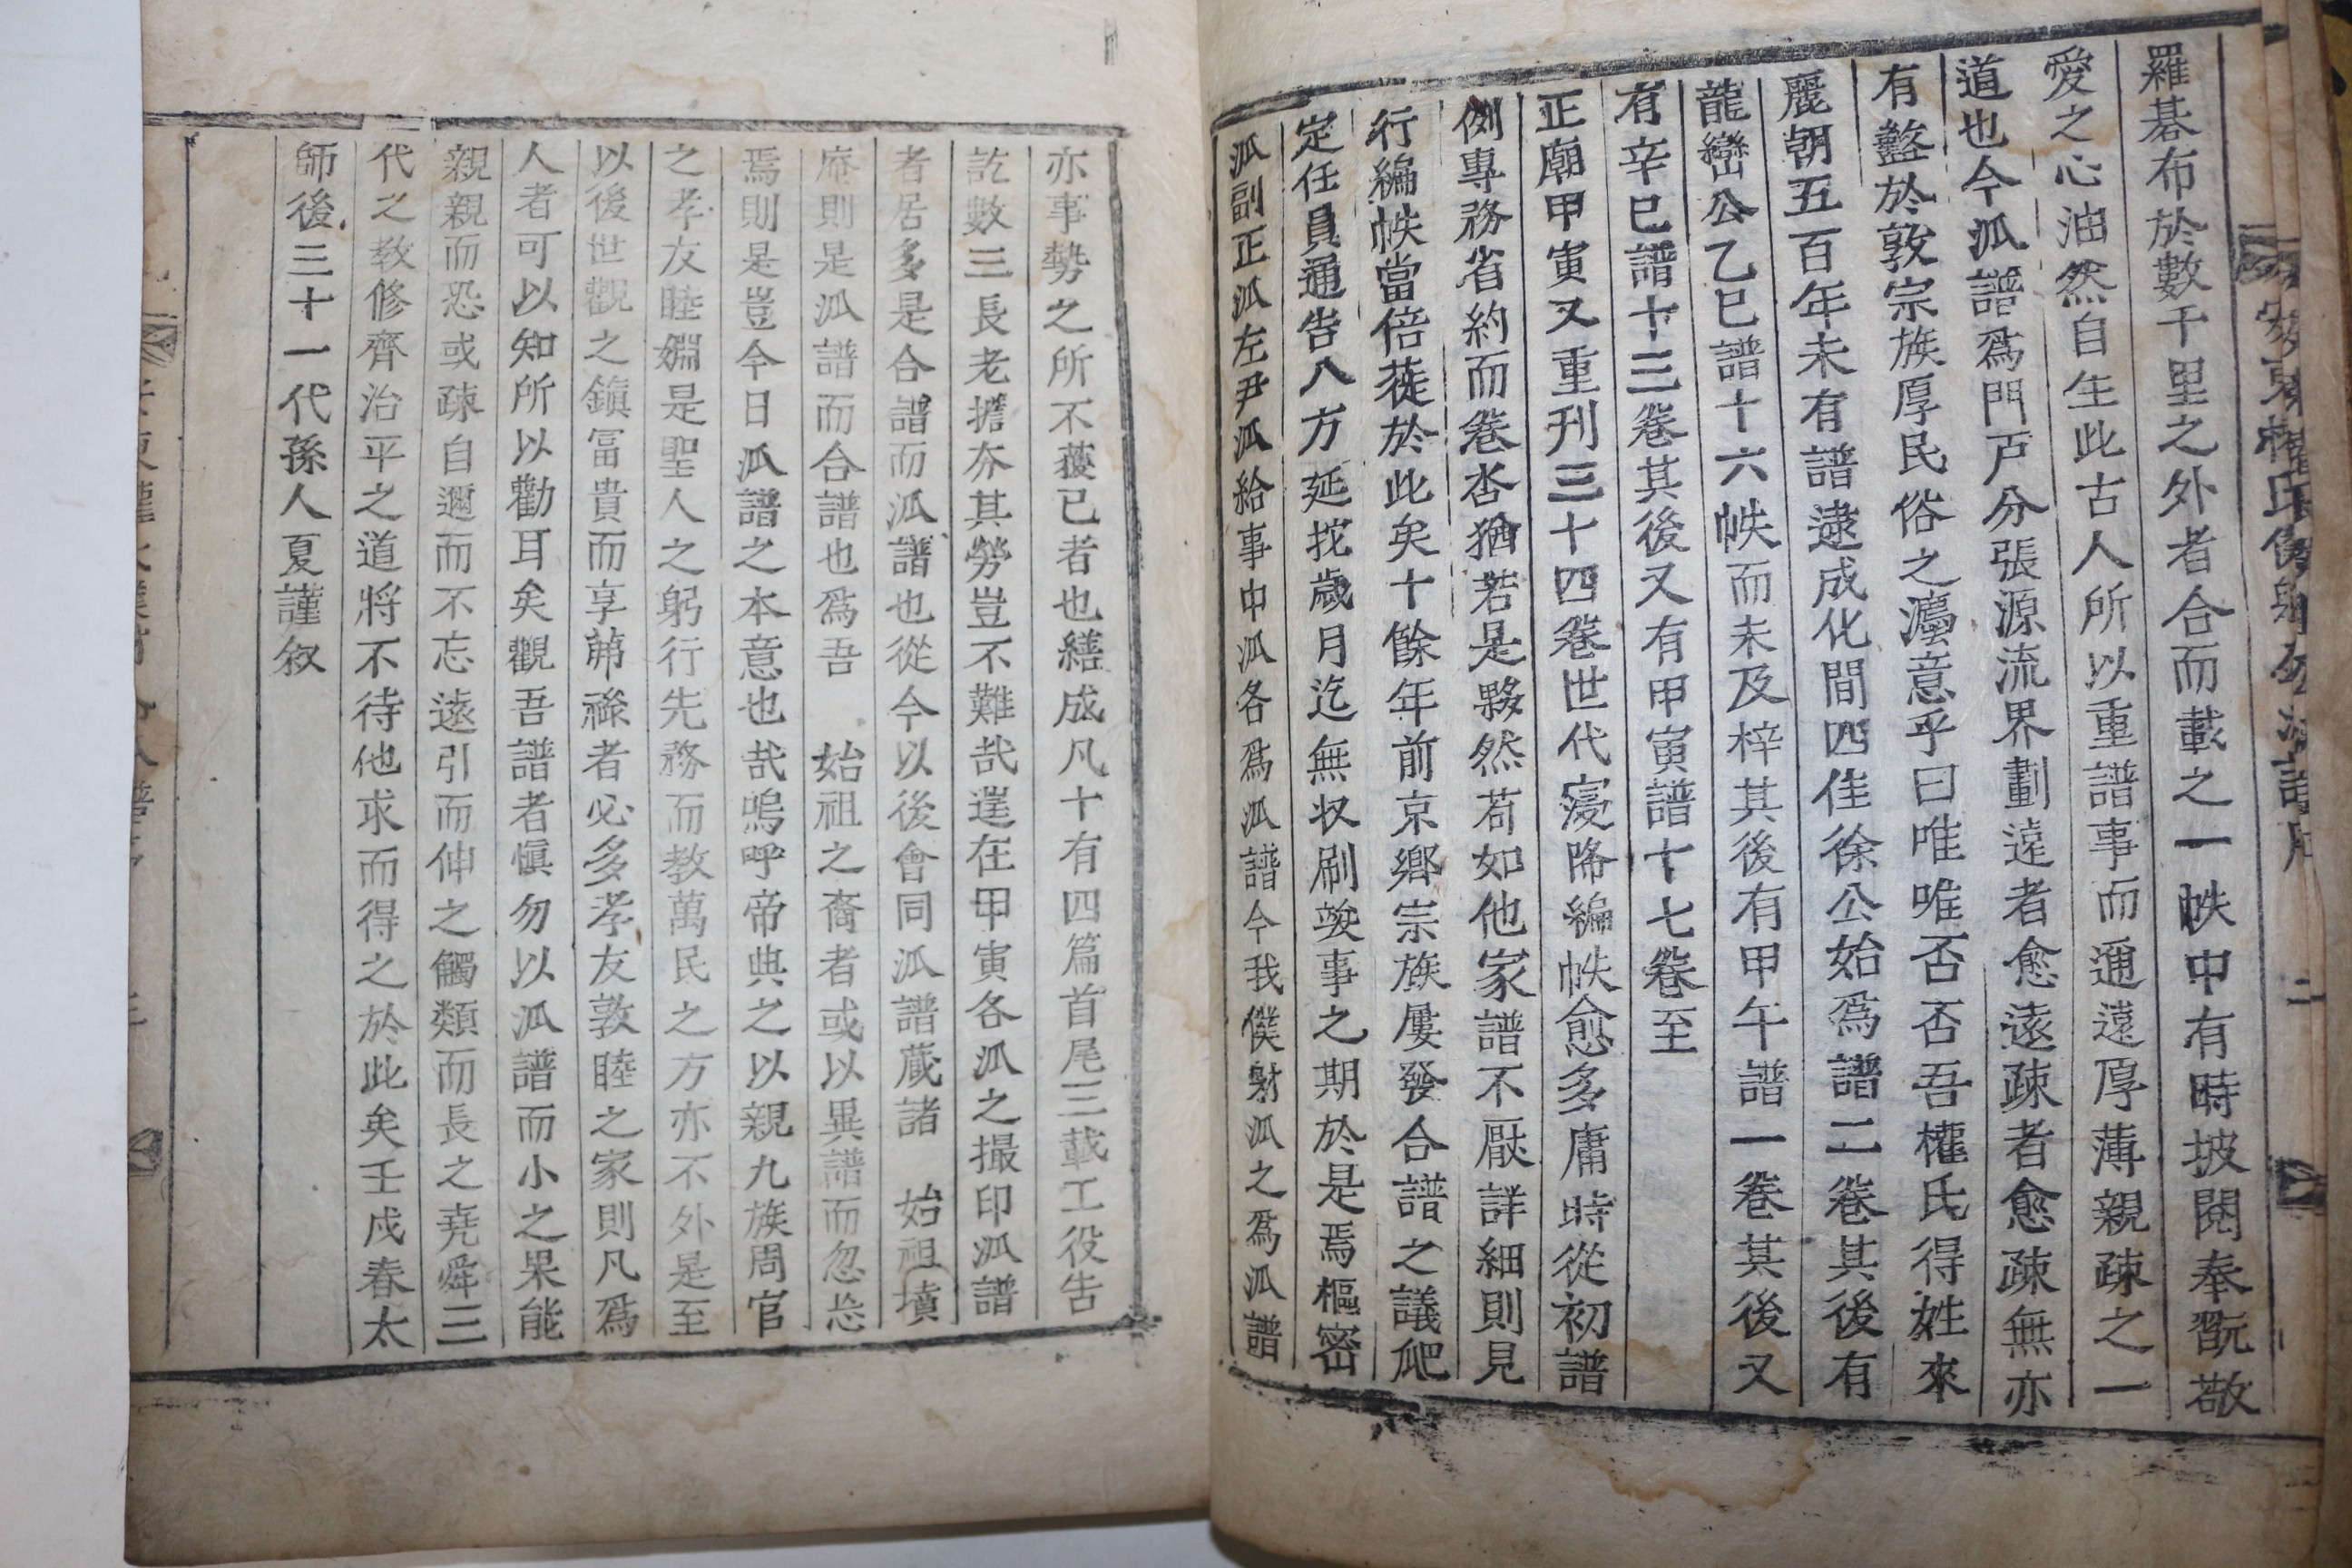 羅碁布於數千里之外者合而載之一帙中有時披閱奉翫敬
愛之心油然自生此古人所以重譜事而邇遠厚薄親疎之一
道也今派譜爲門戸分張源流界劃遠者愈遠疎者愈疎無亦
有盭於敦宗族厚民俗之灋意乎曰唯唯否否吾權氏得姓來
麗朝五百年未有譜逮成化間四佳徐公始爲譜二卷其後有
龍巒公乙巳譜十六帙而未及梓其後有甲午譜一卷其後又
有辛巳譜十三卷其後又有甲寅譜十七卷至
正廟甲寅又重刊三十四卷世代寖降編帙愈多庸時從初譜
例專務省約而卷沓猶若是夥然苟如他家譜不厭詳細則見
行編帙當倍蓰於此矣十餘年前京鄉宗族屢發合譜之議爬
定任員通告八方延拕歲月迄無収刷竣事之期於是焉樞密
派副正派左尹派給事中派各爲派譜今我僕射派之爲派譜
亦事勢之所不獲已者也繕成凡十有四篇首尾三載工役告
訖數三長老擔夯其勞豈不難哉逞在甲寅各派之撮印派譜
者居多是合譜而派譜也從今以後會同派譜蔵諸 始祖墳
庵則是派譜而合譜也爲吾 始祖之裔者或以異譜而忽忘
焉則是豈今日派譜之本意也哉嗚呼帝典之以親九族周官
之孝友睦婣是聖人之躬行先務而教萬民之方亦不外是至
以後世觀之鎮冨貴而享茀祿者必多孝友敦睦之家則凡爲
人者可以知所以勸耳矣觀吾譜者愼勿以派譜而小之果能
親親而恐或疎自邇而不忘遠引而伸之觸類而長之堯舜三
代之教修齊治平之道將不待他求而得之於此矣壬戌春太
師後三十一代孫人夏謹叙